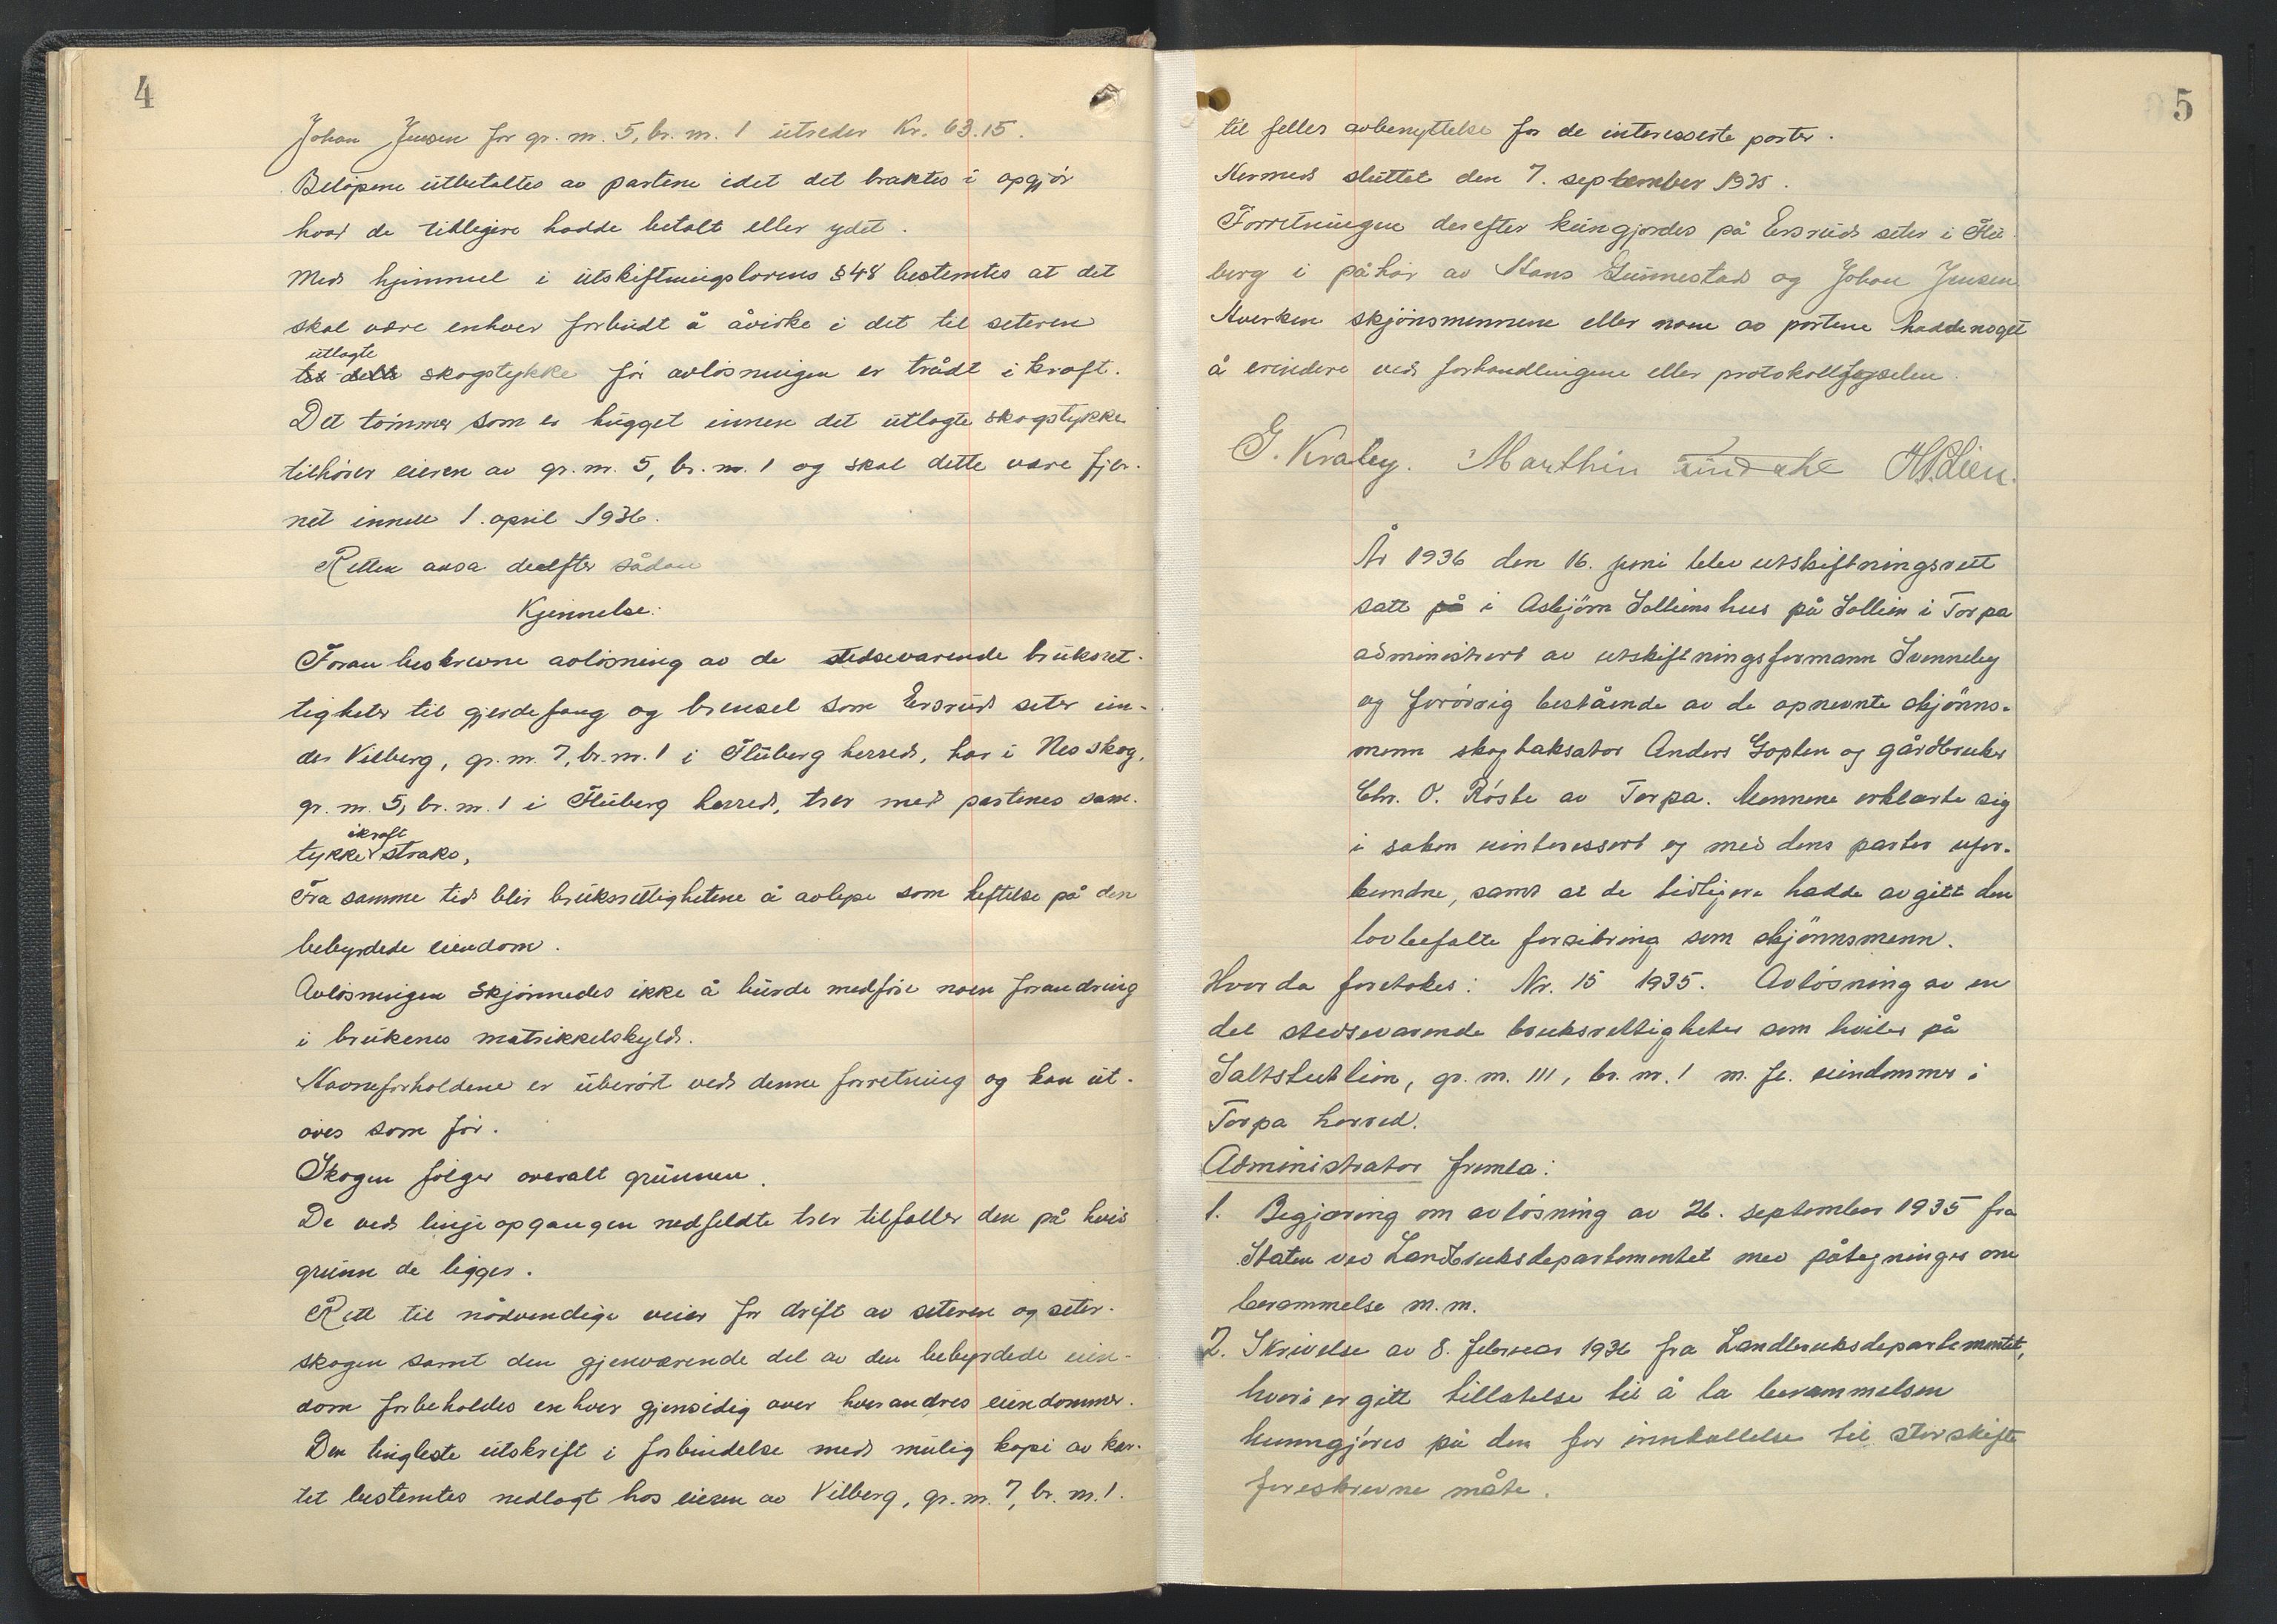 4
Johan Jensen for gr. nr. 5, br. nr. 1 utreder Kr. 63.15.
Beløpene utbetaltes av partene idet det braktes i opgjør
hvad de tidligere hadde betalt eller ydet.
Med hjemmel i utskiftningslovens § 48 bestemtes at det
skal være enhver forbudt å åvirke i det til seteren
utlagte
skogstykke før avløsningen er trådt i kraft.
Det tømmer som er hugget innen det utlagte skogstykke
tilhører eieren av gr. nr. 5, br. nr. 1 og skal dette være fjer-
net innen 1. april 1936.
Retten avsa derefter sådan
Kjennelse:
Foran beskrevne avløsning av de stedsevarende bruksret-
tigheter til gjerdefang og brensel som Ersrud seter un-
der Vilberg, gr. nr. 7, br. nr. 1 i Fluberg herred, har i Nes skog,
gr. nr. 5, br. nr. 1 i Fluberg herred, trer med partenes sam-
ikraft
tykke straks.
Fra samme tid blir bruksrettighetene å avløpe som heftelse på den
bebyrdede eiendom.
Avløsningen skjønnedes ikke å burde medføre noen forandring
i brukenes matrikkelskyld.
Havneforholdene er uberørt ved denne forretning og kan ut-
øves som før.
Skogen følger overalt grunnen.
De ved linjeopgangen nedfeldte trær tilfaller den på hvis
grunn de ligger.
Rett til nødvendige veier for drift av seteren og seter-
skogen samt den gjenværende del av den bebyrdede eien-
dom forbeholdes enhver gjensidig over hverandres eiendommer.
Den tingleste utskrift i forbindelse med mulig kopi av kar-
tet bestemtes nedlagt hos eieren av Vilberg, gr. nr. 7, br. nr. 1.
5
til felles avbenyttelse for de interesserte parter.
Hermed sluttet den 7. september 1935.
Forretningen derefter kungjordes på Ersrud seter i Flu-
berg i påhør av Hans Gunnestad og Johan Jensen
Hverken skjønsmennene eller noen av partene hadde noget
å erindere ved forhandlingene eller protokollførselen.
G. Kraby. Marthin H. Lien.
År 1936 den 16. juni blev utskiftningsrett
satt på i Asbjørn Solliens hus på Sollien i Torpa
administrert av utskiftningsformann Svenneby
og forøvrig bestående av de opnevnte skjønns-
menn skogtaksator Anders Goplen og gårdbruker
Chr. O. Røste av Torpa. Mennene erklærte sig
i saken uinteressert og med dens parter ufor-
bundne, samt at de tidligere hadde avgitt den
lovbefalte forsikring som skjønnsmenn.
Hvor da foretokes: Nr. 15 1935. Avløsning av en
del stedsevarende bruksrettigheter som hviler på
Saltstutlien, gr. nr. 111, br. nr. 1 m. fl. eiendommer i
Torpa herred.
Administrator fremla:
1. Begjæring om avløsning av 26. september 1935 fra
Staten ved Landbruksdepartementet med påtegninger om
berammelse m. m.
2. Skrivelse av 8. februar 1936 fra Landbruksdepartementet,
hvori er gitt tillatelse til å la berammelsen
kunngjøres på den for innkallelse til storskifte
foreskrevne måte.